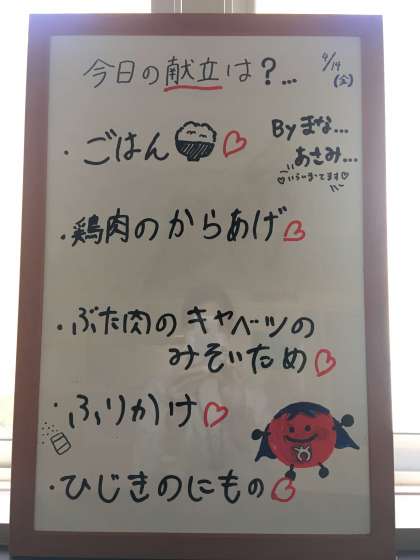 今日の献立は?...
4/14
(金)
・ごはん
Byまな...
あさみ...
・鶏肉のからあげ
・ぶた肉のキャベツの
みそいため
・ふりかけ
・ひじきのにもの